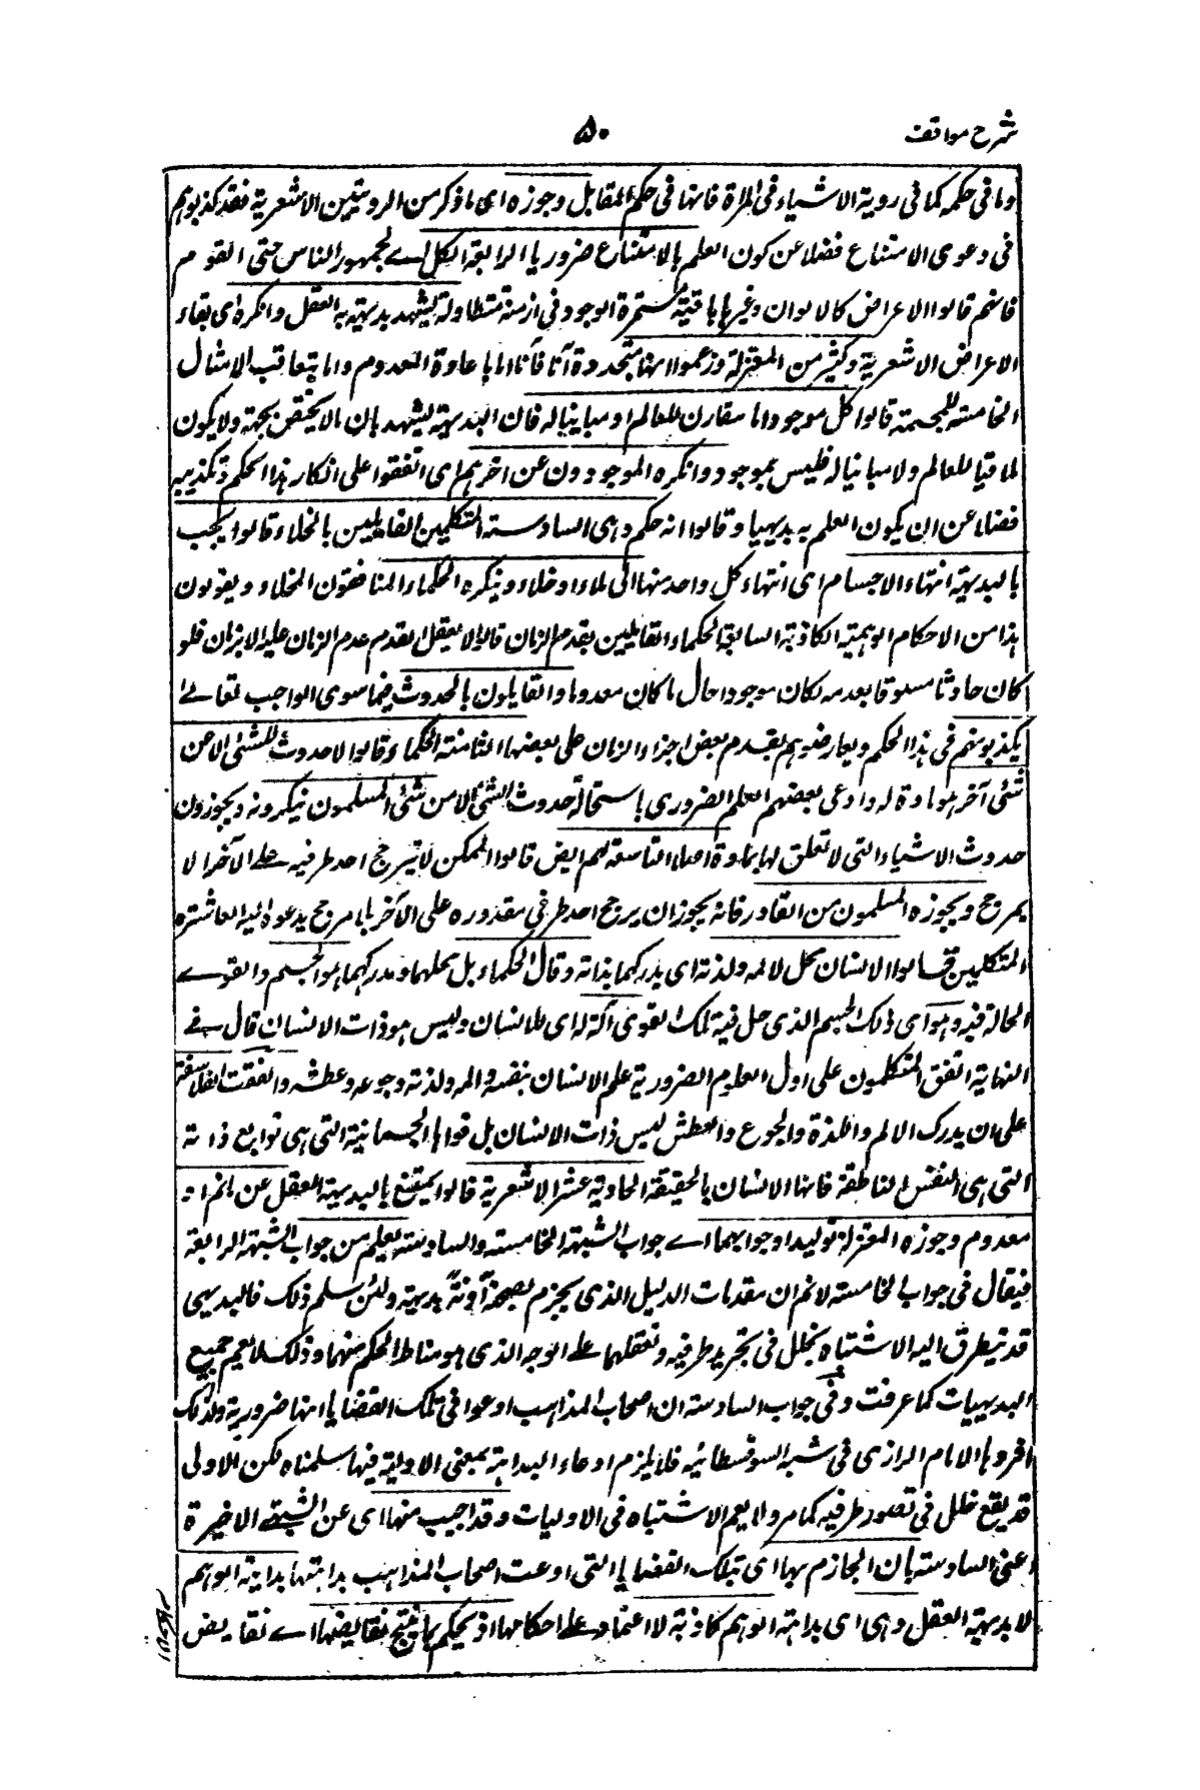 شرح مواقف
۵۰
وما في حكمه كما في روية الاشياء في المرآة فانها في حكم المقابل وجوزه اى ما ذكر من الرويتين الاشعرية فقد كذبوهم
في دعوى الامتناع فضلا عن كون العلم بالامتناع ضروريا الرابعة الكل اے لجمهور الناس حتى القوم
فانهم قالوا الاعراض كالالوان وغيرها باقية مستمرة الوجود في ازمنة متطاولة يشهد بديهية به العقل وانكره اى بقاء
الاعراض الاشعرية وكثير من المعتزلة وزعموا انها متجددة آنا فآنا اما باعادة المعدوم واما بتعاقب الامثال
الخامسة للمجسمة قالوا كل موجود اما مقارن للعالم او مباين له فان البديهية يشهد بان ما لا يختص بجهة ولا يكون
ملاقيا للعالم ولا مباينا له فليس بموجود وانكره الموحدون عن اخرهم اى اتفقوا على انكار هذا الحكم وتكذيبه
فضلا عن ان يكون العلم به بديهيا وقالوا انه حكم وهمى السادسة المتكلمين القايلين بالخلاء قالوا يجب
بالبديهية انتهاء الاجسام اى انتهاء كل واحد منها الى ملاء او خلاء وينكره الحكماء المنافقون الخلاء ويقولون
هذا من الاحكام الوهمية الكاذبة السابعة الحكماء القايلين بقدم الزمان قالوا لا يعقل تقدم عدم الزمان عليه الا بزمان فلو
كان حادثا مسبوقا بعدمه لكان موجودا حال ما كان معدوما والقايلون بالحدوث فيما سوى الواجب تعالے
يكذبونهم في هذا الحكم ويعارضوهم بتقدم بعض اجزاء الزمان على بعضها الثامنة الحكماء وقالوا لا حدوث للشئ الا عن
شئ آخر هو مادة له وادعى بعضهم العلم الضرورى باستحالة حدوث الشئ لا من شئ المسلمون ينكرونه ويجوزون
حدوث الاشياء التى لا تعلق لها بمادة اصلا التاسعة لهم ايض قالوا الممكن لا يترجح احد طرفيه علے الآخر الا
بمرجح ويجوزه المسلمون من القادر فانه يجوز ان يرجح احد طرفي مقدوره على الآخر بلا مرجح يدعوه اليه العاشرة
المتكلمين قالوا الانسان محل لالمه ولذته اى يدركهما بذاته وقال الحكماء بل محلهما ومدركهما هو الجسم والقوے
الحالة فيه وهو اى ذلك الجسم الذى حل فيه تلك القوى آلة له اى للانسان وليس هو ذات الانسان قال فے
النهاية اتفق المتكلمون على ان اول العلوم الضرورية علم الانسان بنفسه والمه ولذته وجوعه وعطشه واتفقت الفلاسفة
على ان يدرك الالم واللذة والجوع والعطش ليس ذات الانسان بل قواها الجسمانية التى هى توابع ذاته
التى هى النفس الناطقة فانها الانسان بالحقيقة الحادية عشر الاشعرية قالوا يمتنع بالبديهية العقل عن
معدوم وجوزه المعتزلة توليدا وجوابهما اے جواب الشبهة الخامسة والسادسة يعلم من جواب الشبهة الرابعة
فيقال في جواب الخامسة لا نم ان مقدمات الدليل الذى يجزم بصحة آونة بديهية ولئن سلم ذلك فالبديهى
قد يتطرق اليه الاشتباه بخلل في تجريد طرفيه وتعقلهما علے الوجه الذى هو مناط الحكم منهما وذلك لا يعم جميع
البديهيات كما عرفت وفي جواب السادسة ان اصحاب المذاهب ادعوا في تلك القضايا انها ضرورية ولذلك
افردها الامام الرازى في شبه السوفسطائيه فلا يلزم ادعاء البداهة بمعنى الاولية فيها سلمناه لكن الاولى
قد يقع خلل في تصور طرفيه كما مر ولا يعم الاشتباه في الاوليات وقد اجيب منها اى عن الشبهة الاخيرة
اعنى السادسة بان الجازم بها اى بتلك القضايا التى ادعت اصحاب المذاهب بداهتها بداهة الوهم
لا بديهية العقل وهى اى بداهة الوهم كاذبة لا اعتماد علے احكامها اذ يحكم بما ينتج نقايضها اے نقايض